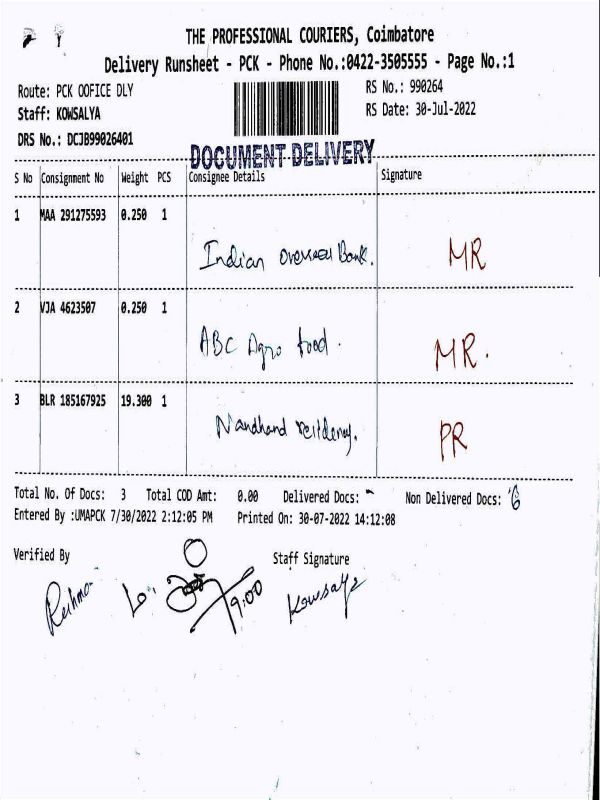 THE PROFESSIONAL COURIERS, Coimbatore
Delivery Runsheet - PCK - Phone No.:0422-3505555 - Page No.:1
Route: PCK OOFICE DLY
RS No.: 990264
Staff: KOWSALYA
RS Date: 30-Jul-2022
DRS No.: DCJB99026401
DOCUMENT DELIVERY
S No Consignment No Weight PCS Consignee Details Signature
1 MAA 291275593 0.250 1
Indian overseas Bank. MR
2 VJA 4623507 0.250 1
ABC Agro food. MR.
3 BLR 185167925 19.300 1
Nandhand residency. PR
Total No. Of Docs: 3 Total COD Amt: 0.00 Delivered Docs: - Non Delivered Docs:
Entered By :UMAPCK 7/30/2022 2:12:05 PM Printed On: 30-07-2022 14:12:08
Verified By Staff Signature
9.00 Kowsalya